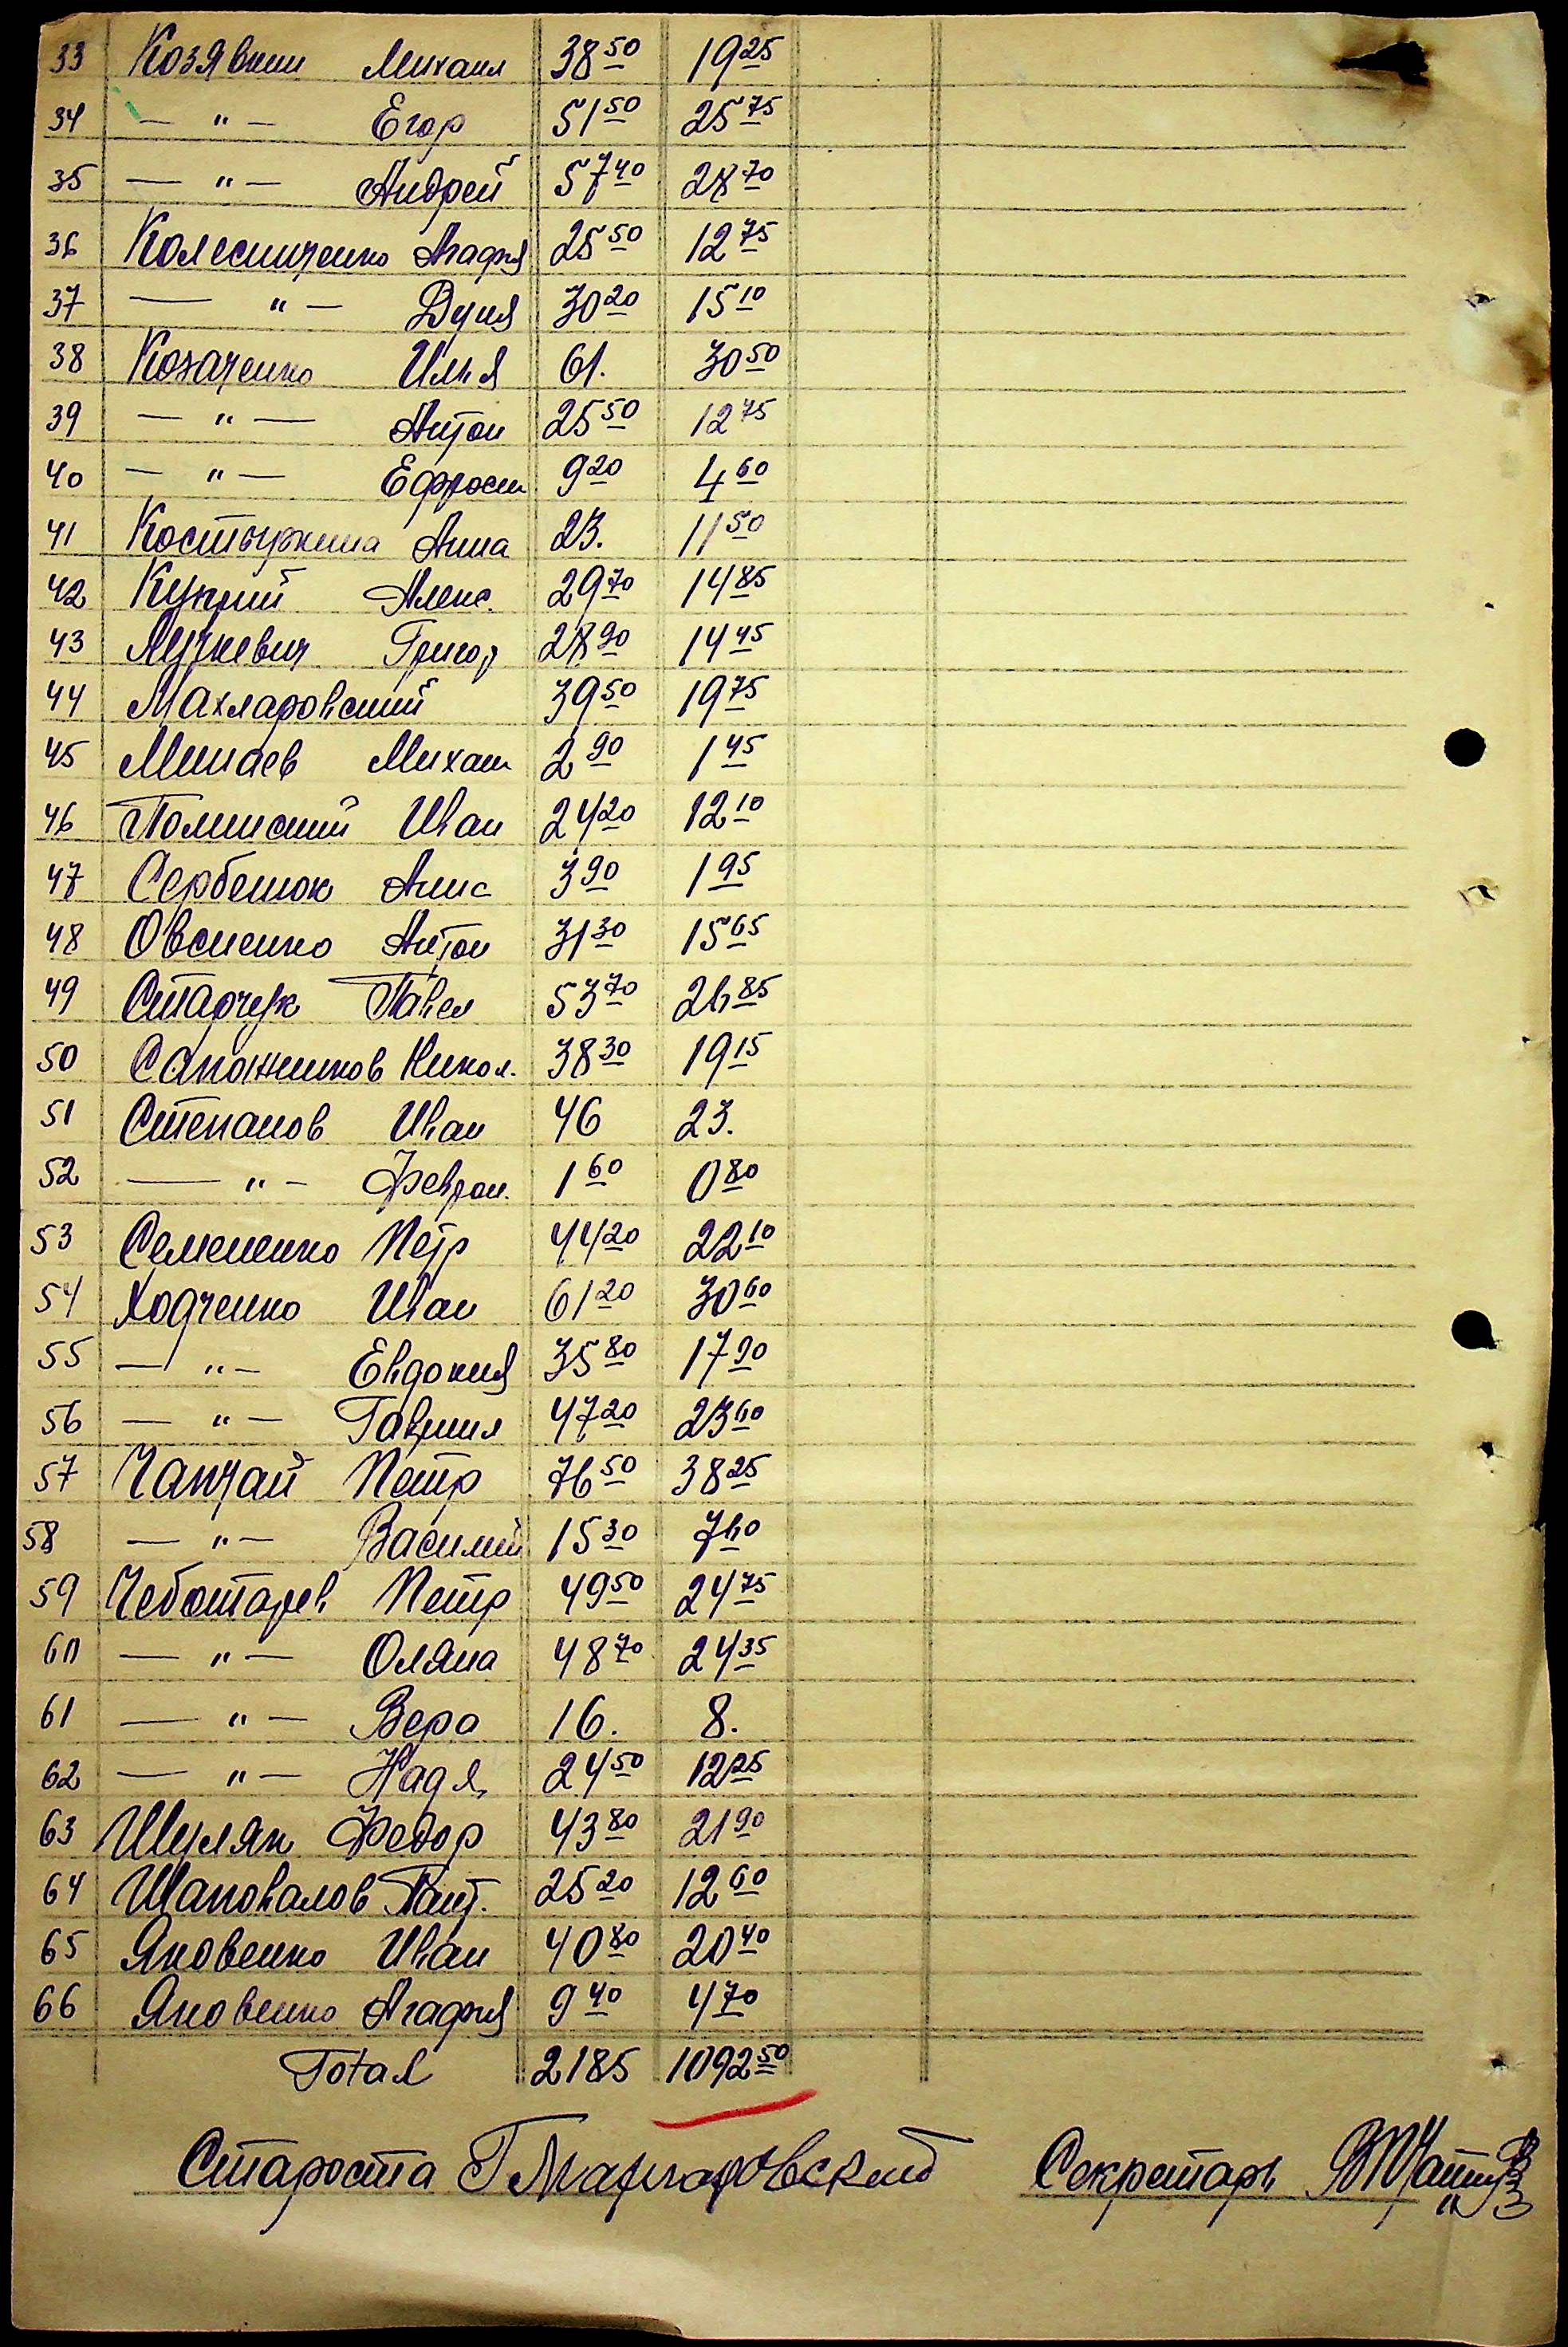 33 Козявкин Михаил 38 50 19 25
34 — " — Егор 51 50 25 75
35 — " — Андрей 57 40 28 70
36 Колесниченко Агафия 25 50 12 75
37 — " — Дуня 30 20 15 10
38 Козаченко Илья 61. 30 50
39 — " — Антон 25 50 12 75
40 — " — Ефросин 9 20 4 60
41 Костыркина Анна 23. 11 50
42 Куприй Алекс. 29 70 14 85
43 Мучкевич Григор 28 90 14 45
44 Махларовский 39 50 19 75
45 Минаев Михаил 2 90 1 45
46 Полинский Иван 24 20 12 10
47 Сербенюк Анна 3 90 1 95
48 Овсиенко Антон 31 30 15 65
49 Старчук Павел 53 70 26 85
50 Сапожников Никол. 38 30 19 15
51 Степанов Иван 46 23.
52 — " — Феврон. 1 60 0 80
53 Семененко Петр 44 20 22 10
54 Ходченко Иван 61 20 30 60
55 — " — Евдокия 35 80 17 90
56 — " — Гавриил 47 20 23 60
57 Чапчай Петр 76 50 38 25
58 — " — Василий 15 30 7 60
59 Чеботарев Петр 49 50 24 75
60 — " — Оляна 48 70 24 35
61 — " — Вера 16. 8.
62 — " — Надя 24 50 12 25
63 Шуляк Федор 43 80 21 90
64 Шаповалов Пант. 25 20 12 60
65 Яковенко Иван 40 80 20 40
66 Яковенко Агафия 9 40 4 70
Total 2185 1092 50
Староста Г Махларовский Секретарь